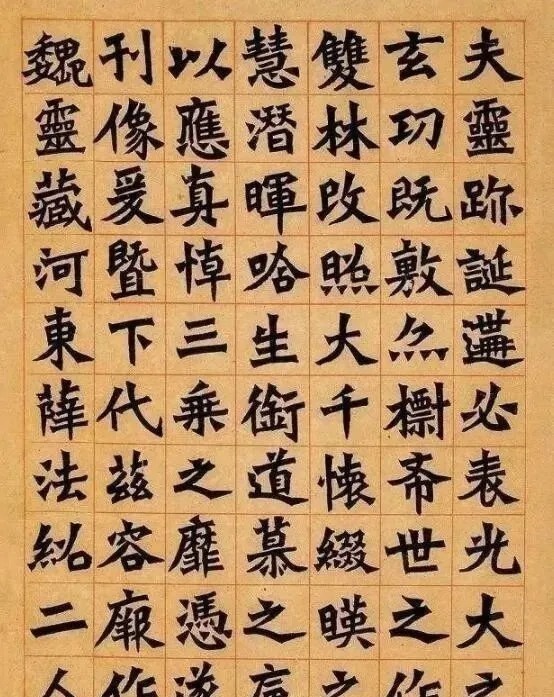 夫靈跡誕遘必表光大之
玄功既敷亦摽希世之作
雙林改照大千懷綴暎之
慧潛暉啥生銜道慕之
以應真悼三乘之靡憑遂
刊像爰暨下代茲容厥作
魏靈藏河東薛法紹二人